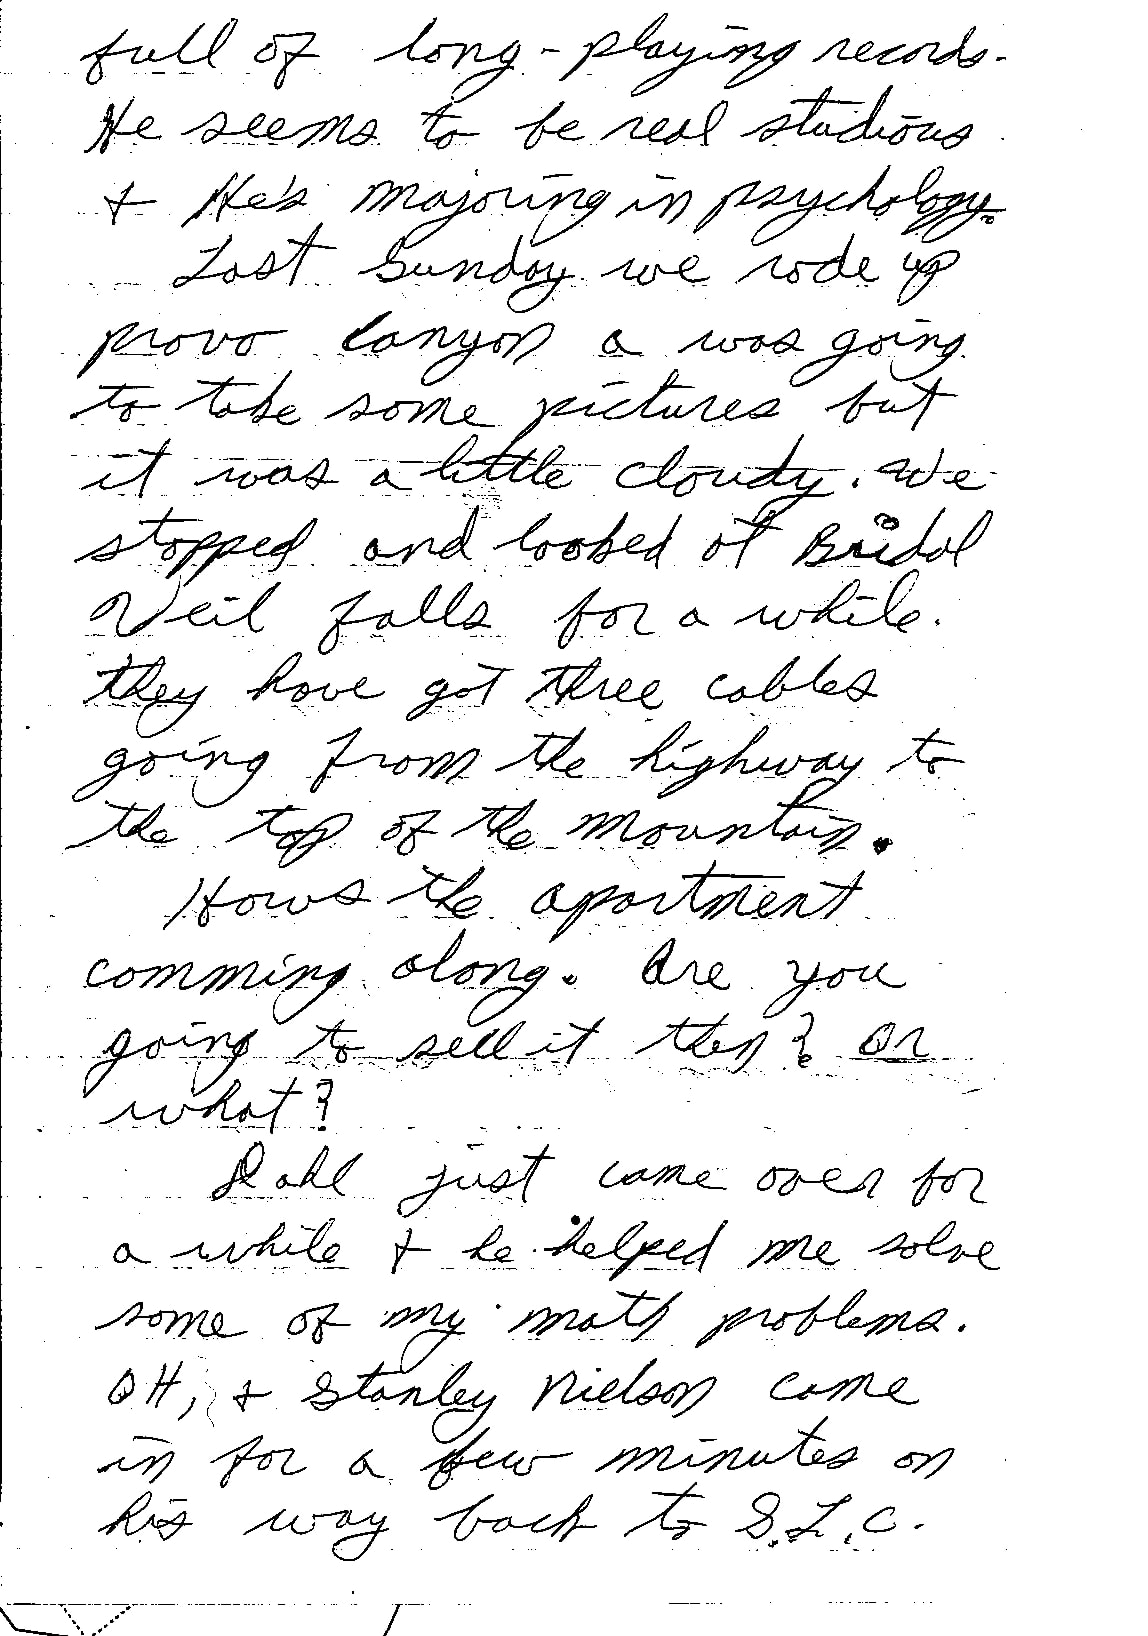 full of long-playing records.
He seems to be real studious
+ He's majoring in psychology.
Last Sunday we rode up
provo Canyon a was going
to take some pictures but
it was a little cloudy. We
stopped and looked at Bridal
Veil falls for a while.
they have got three cables
going from the highway to
the top of the mountain.
Hows the apartment
comming along. Are you
going to sell it then? Or
what?
Dahl just came over for
a while + he helped me solve
some of my math problems.
OH, + Stanley Nielson came
in for a few minutes on
his way back to S.L.C.